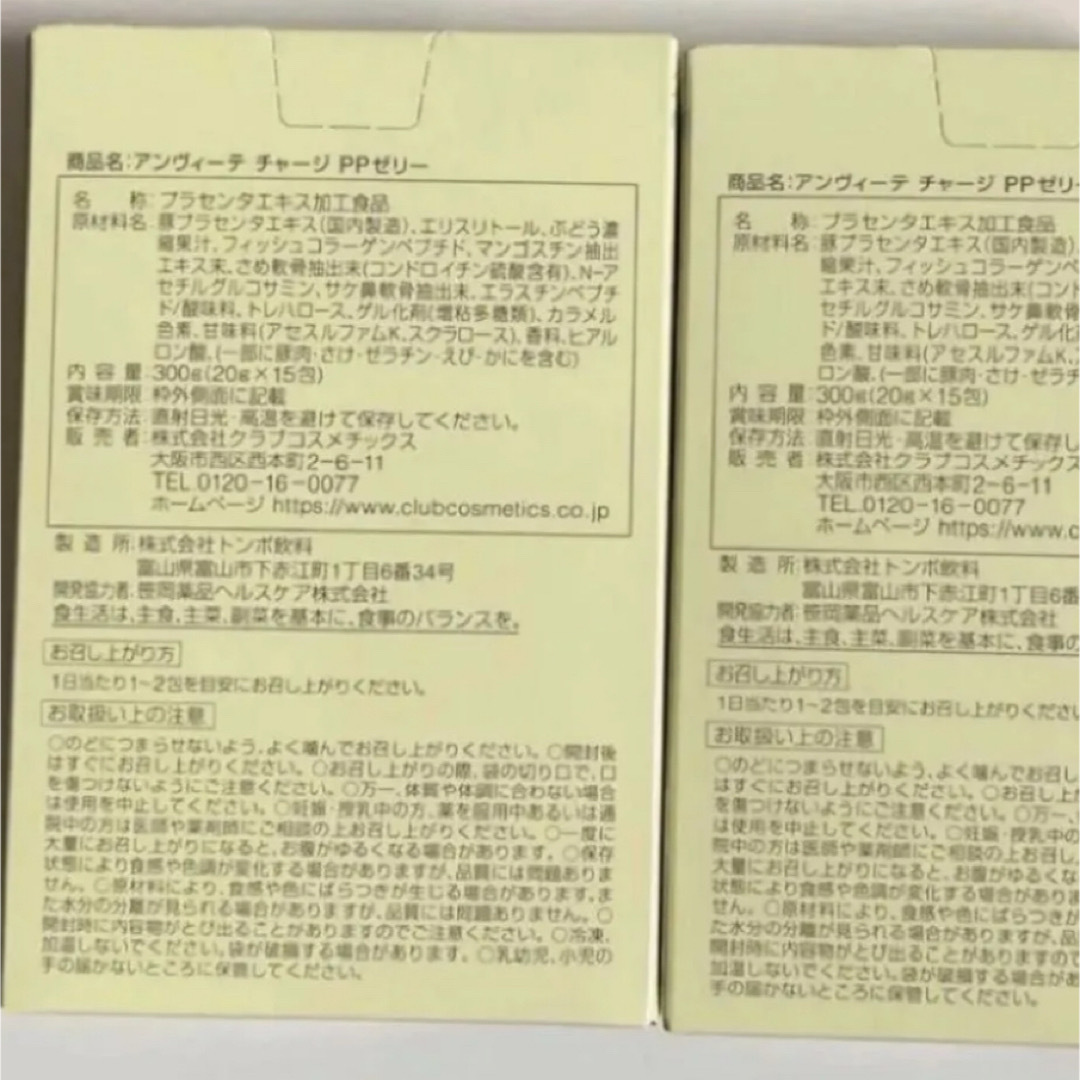 商品名:アンヴィーテ チャージ PPゼリー
名 称:プラセンタエキス加工食品
原材料名:豚プラセンタエキス(国内製造)、エリスリトール、ぶどう濃
縮果汁、フィッシュコラーゲンペプチド、マンゴスチン抽出
エキス末、さめ軟骨抽出末(コンドロイチン硫酸含有)、N-ア
セチルグルコサミン、サケ鼻軟骨抽出末、エラスチンペプチ
ド/酸味料、トレハロース、ゲル化剤(増粘多糖類)、カラメル
色素、甘味料(アセスルファムK、スクラロース)、香料、ヒアル
ロン酸、(一部に豚肉・さけ・ゼラチン・えび・かにを含む)
内 容 量:300g(20g×15包)
賞味期限:枠外側面に記載
保存方法:直射日光・高温を避けて保存してください。
販 売 者:株式会社クラブコスメチックス
大阪市西区西本町2-6-11
TEL.0120-16-0077
ホームページ https://www.clubcosmetics.co.jp
製 造 所:株式会社トンボ飲料
富山県富山市下赤江町1丁目6番34号
開発協力者:笹岡薬品ヘルスケア株式会社
食生活は、主食、主菜、副菜を基本に、食事のバランスを。
お召し上がり方
1日当たり1~2包を目安にお召し上がりください。
お取扱い上の注意
○のどにつまらせないよう、よく噛んでお召し上がりください。○開封後
はすぐにお召し上がりください。○お召し上がりの際、袋の切り口で、口
を傷つけないようにご注意ください。○万一、体質や体調に合わない場合
は使用を中止してください。○妊娠・授乳中の方、薬を服用中あるいは通
院中の方は医師や薬剤師にご相談の上お召し上がりください。○一度に
大量にお召し上がりになると、お腹がゆるくなる場合があります。○保存
状態により食感や色調が変化する場合がありますが、品質には問題ありま
せん。○原材料により、食感や色にばらつきが生じる場合があります。ま
た水分の分離が見られる場合がありますが、品質には問題ありません。○
開封時に内容物がとび出ることがありますのでご注意ください。○冷凍、
加温しないでください。袋が破損する場合があります。○乳幼児、小児の
手の届かないところに保管してください。
商品名:アンヴィーテ チャージ PPゼリー
名 称:プラセンタエキス加工食品
原材料名:豚プラセンタエキス(国内製造)、
縮果汁、フィッシュコラーゲンペ
エキス末、さめ軟骨抽出末(コンド
セチルグルコサミン、サケ鼻軟骨
ド/酸味料、トレハロース、ゲル化
色素、甘味料(アセスルファムK、
ロン酸、(一部に豚肉・さけ・ゼラチ
内 容 量:300g(20g×15包)
賞味期限:枠外側面に記載
保存方法:直射日光・高温を避けて保存し
販 売 者:株式会社クラブコスメチックス
大阪市西区西本町2-6-11
TEL.0120-16-0077
ホームページ https://www.c
製 造 所:株式会社トンボ飲料
富山県富山市下赤江町1丁目6番
開発協力者:笹岡薬品ヘルスケア株式会社
食生活は、主食、主菜、副菜を基本に、食事の
お召し上がり方
1日当たり1~2包を目安にお召し上がりくださ
お取扱い上の注意
○のどにつまらせないよう、よく噛んでお召し
はすぐにお召し上がりください。○お召し上が
を傷つけないようにご注意ください。○万一、
は使用を中止してください。○妊娠・授乳中の
院中の方は医師や薬剤師にご相談の上お召し
大量にお召し上がりになると、お腹がゆるくな
状態により食感や色調が変化する場合がありま
せん。○原材料により、食感や色にばらつきが
た水分の分離が見られる場合がありますが、品
開封時に内容物がとび出ることがありますので
加温しないでください。袋が破損する場合があ
手の届かないところに保管してください。